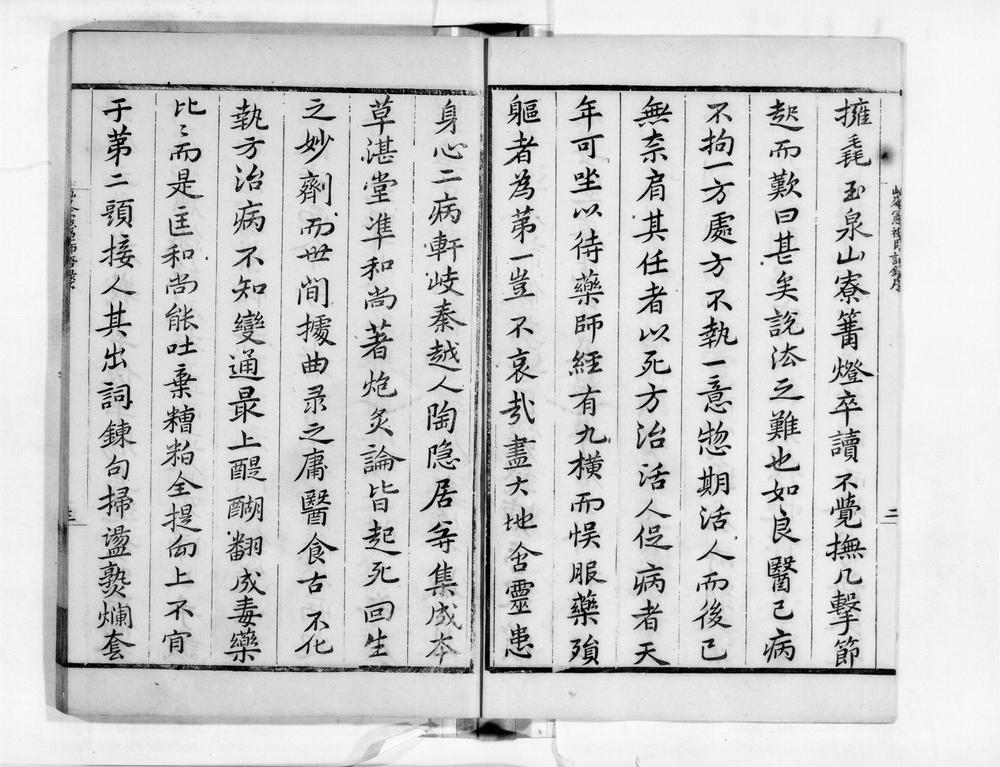 擁毳玉泉山寮篝燈卒讀不覺撫几擊節
起而歎曰甚矣說法之難也如良醫已病
不拘一方處方不執一意惣期活人而後已
無柰肩其任者以死方治活人促病者天
年可坐以待藥師經有九橫而悞服藥殞
軀者為第一豈不哀㢤盡大地含靈患
二
身心二病軒岐秦越人陶隐居弃集成本
草湛堂準和尚著炮炙論皆起死回生
之妙劑而世間據曲录之庸醫食古不化
執方治病不知變通最上醍醐翻成毒藥
比〻而是匡和尚能吐棄糟粕全提向上不肎
于苐二頭接人其出詞鍊句掃盪𤍠爛套
三